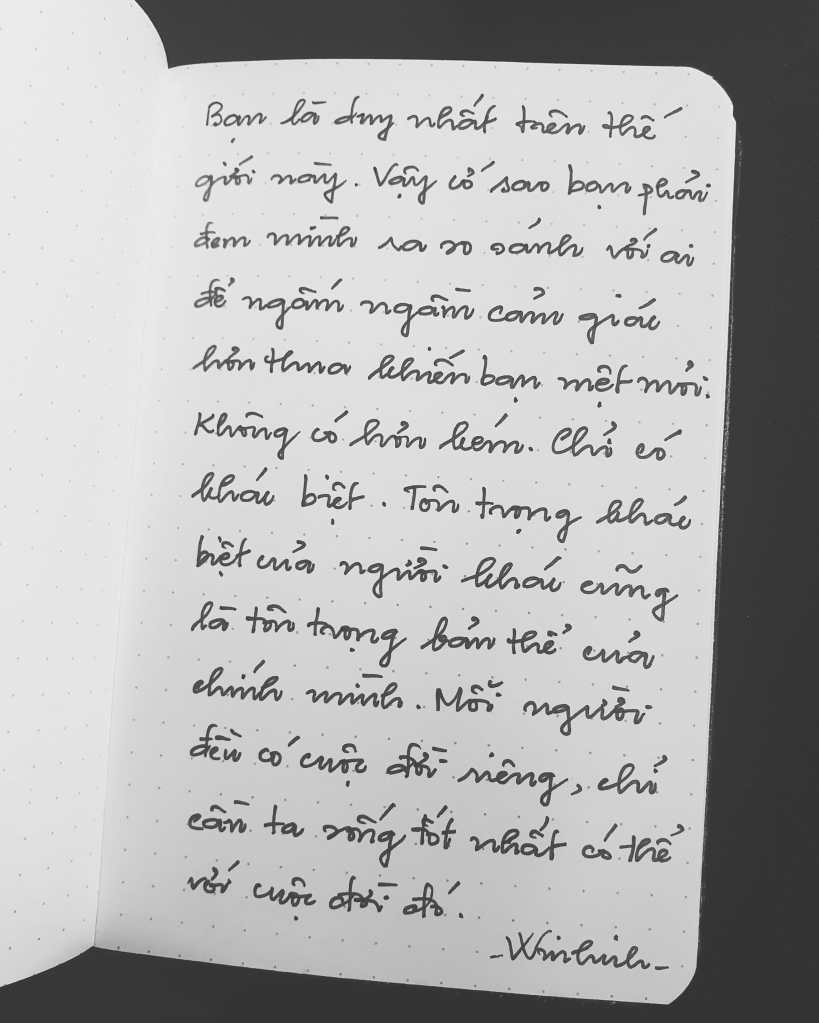 Bạn là duy nhất trên thế
giới này. Vậy cớ sao bạn phải
đem mình ra so sánh với ai
để ngấm ngầm cảm giác
hơn thua khiến bạn mệt mỏi.
Không có hơn kém. Chỉ có
khác biệt. Tôn trọng khác
biệt của người khác cũng
là tôn trọng bản thể của
chính mình. Mỗi người
đều có cuộc đời riêng, chỉ
cần ta sống tốt nhất có thể
với cuộc đời đó.
-Winhinh-